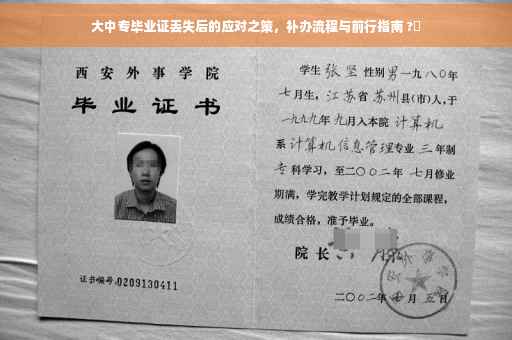 大中专毕业证丢失后的应对之策，补办流程与前行指南 ?
西安外事学院
毕业证书
证书编号:0209130411
学生 张坚 性别男一九八〇年
七月生，江苏省 苏州县(市)人,于
一九九九年 九月入本院 计算机
系 计算机信息管理专业 三 年制
专 科学习，至二〇〇二年 七月修业
期满，学完教学计划规定的全部课程，
成绩合格，准予毕业。
院长
二〇〇二年 月 五日